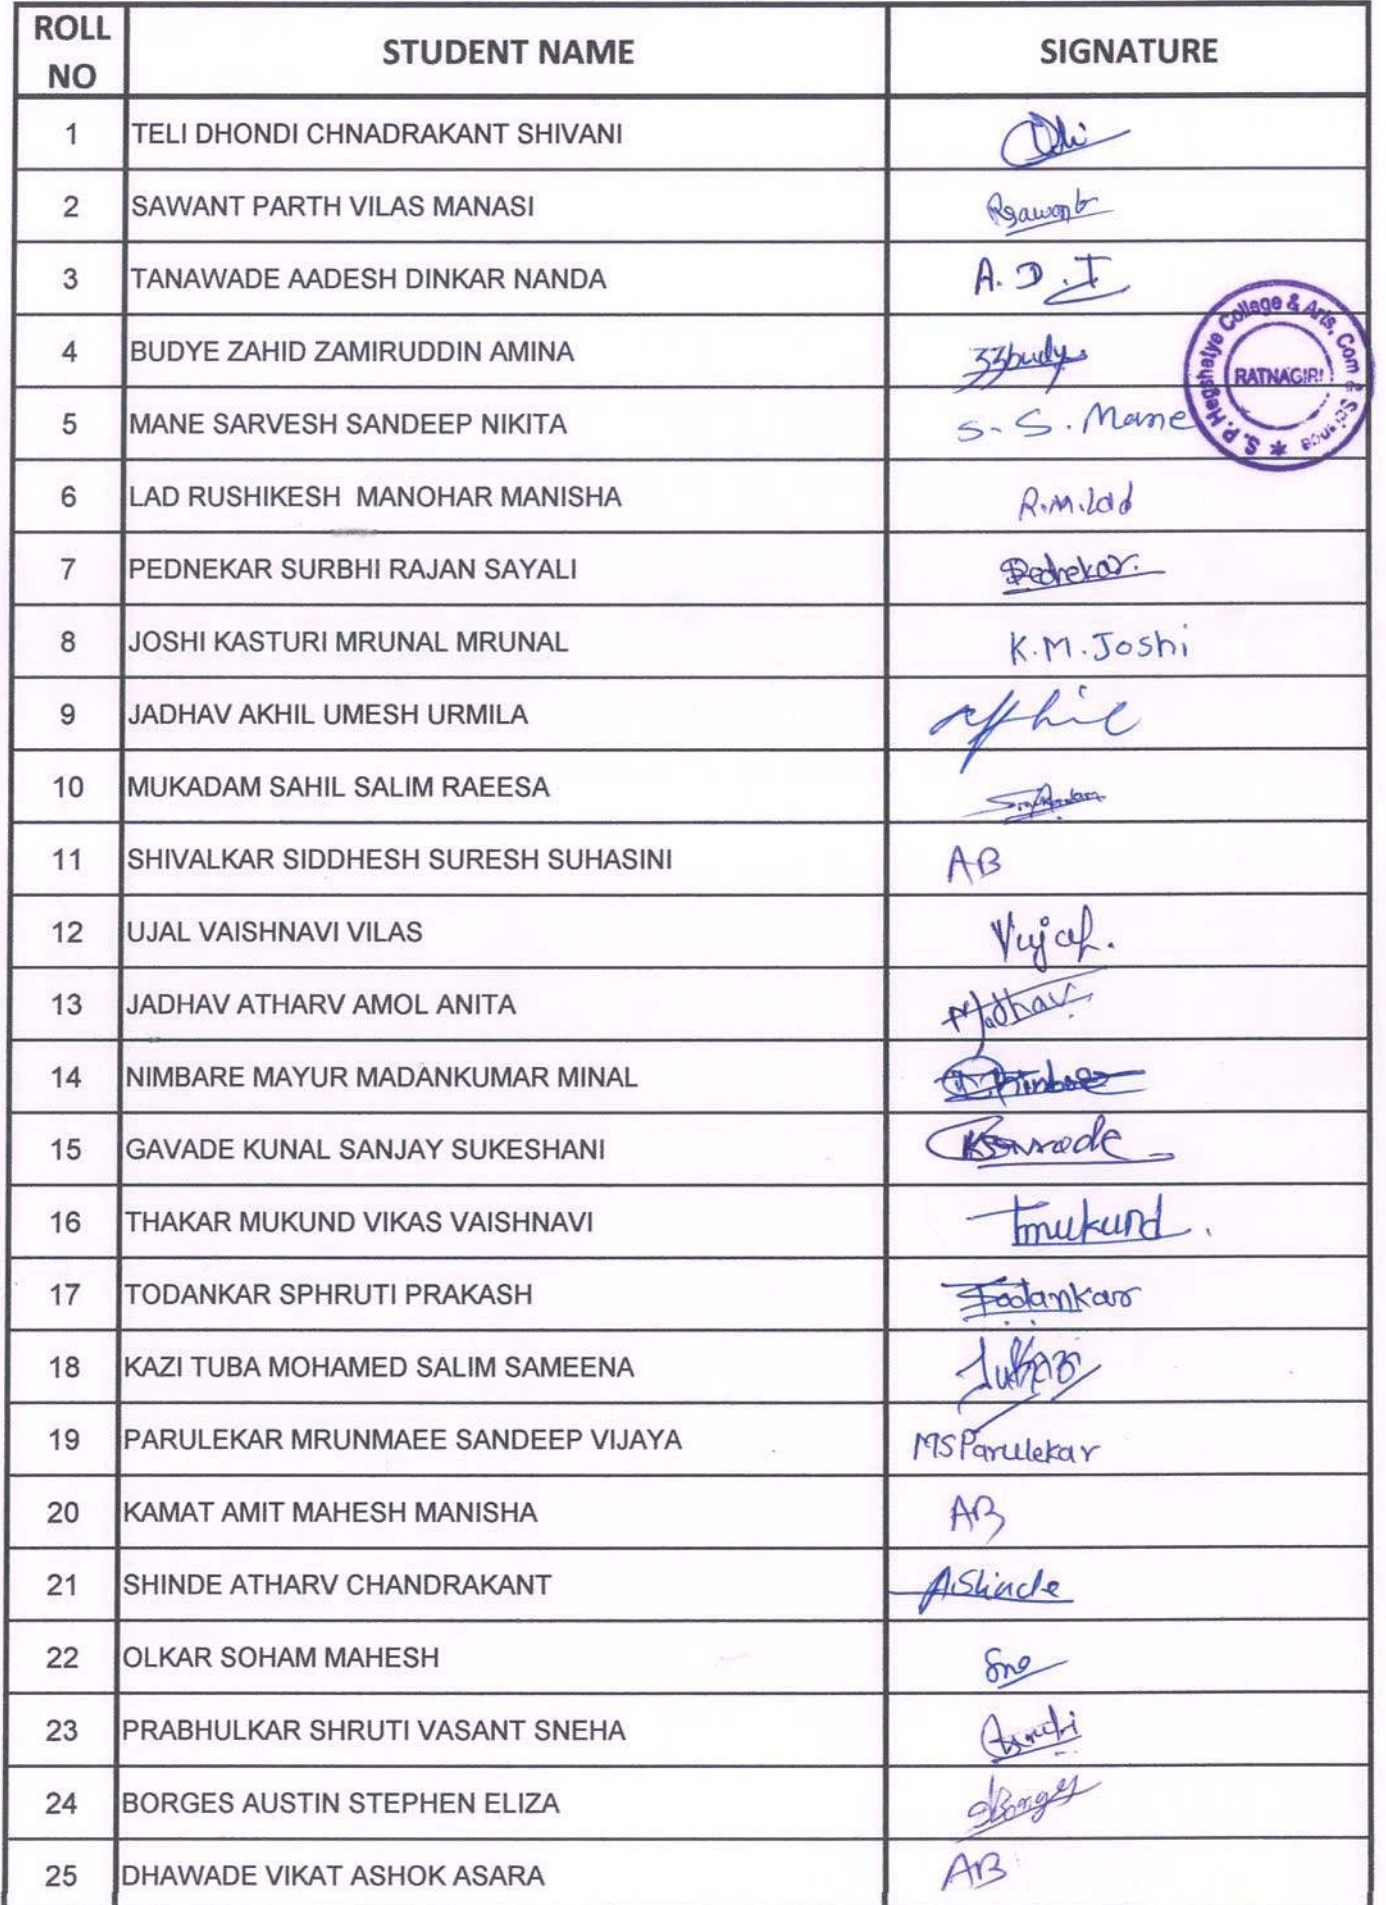 ROLL NO STUDENT NAME SIGNATURE
1 TELI DHONDI CHNADRAKANT SHIVANI
2 SAWANT PARTH VILAS MANASI Rsawant
3 TANAWADE AADESH DINKAR NANDA A.D.T
4 BUDYE ZAHID ZAMIRUDDIN AMINA zzbudye
5 MANE SARVESH SANDEEP NIKITA S.S.Mane
S.P. Hegshetye College & Arts, Com & Science
RATNAGIRI
6 LAD RUSHIKESH MANOHAR MANISHA R.M.Lad
7 PEDNEKAR SURBHI RAJAN SAYALI Pednekar.
8 JOSHI KASTURI MRUNAL MRUNAL K.M.Joshi
9 JADHAV AKHIL UMESH URMILA
10 MUKADAM SAHIL SALIM RAEESA
11 SHIVALKAR SIDDHESH SURESH SUHASINI AB
12 UJAL VAISHNAVI VILAS Vujal.
13 JADHAV ATHARV AMOL ANITA
14 NIMBARE MAYUR MADANKUMAR MINAL
15 GAVADE KUNAL SANJAY SUKESHANI
16 THAKAR MUKUND VIKAS VAISHNAVI Tmukund.
17 TODANKAR SPHRUTI PRAKASH Todankar
18 KAZI TUBA MOHAMED SALIM SAMEENA
19 PARULEKAR MRUNMAEE SANDEEP VIJAYA MSParulekar
20 KAMAT AMIT MAHESH MANISHA AB
21 SHINDE ATHARV CHANDRAKANT A.Shinde
22 OLKAR SOHAM MAHESH
23 PRABHULKAR SHRUTI VASANT SNEHA
24 BORGES AUSTIN STEPHEN ELIZA
25 DHAWADE VIKAT ASHOK ASARA AB